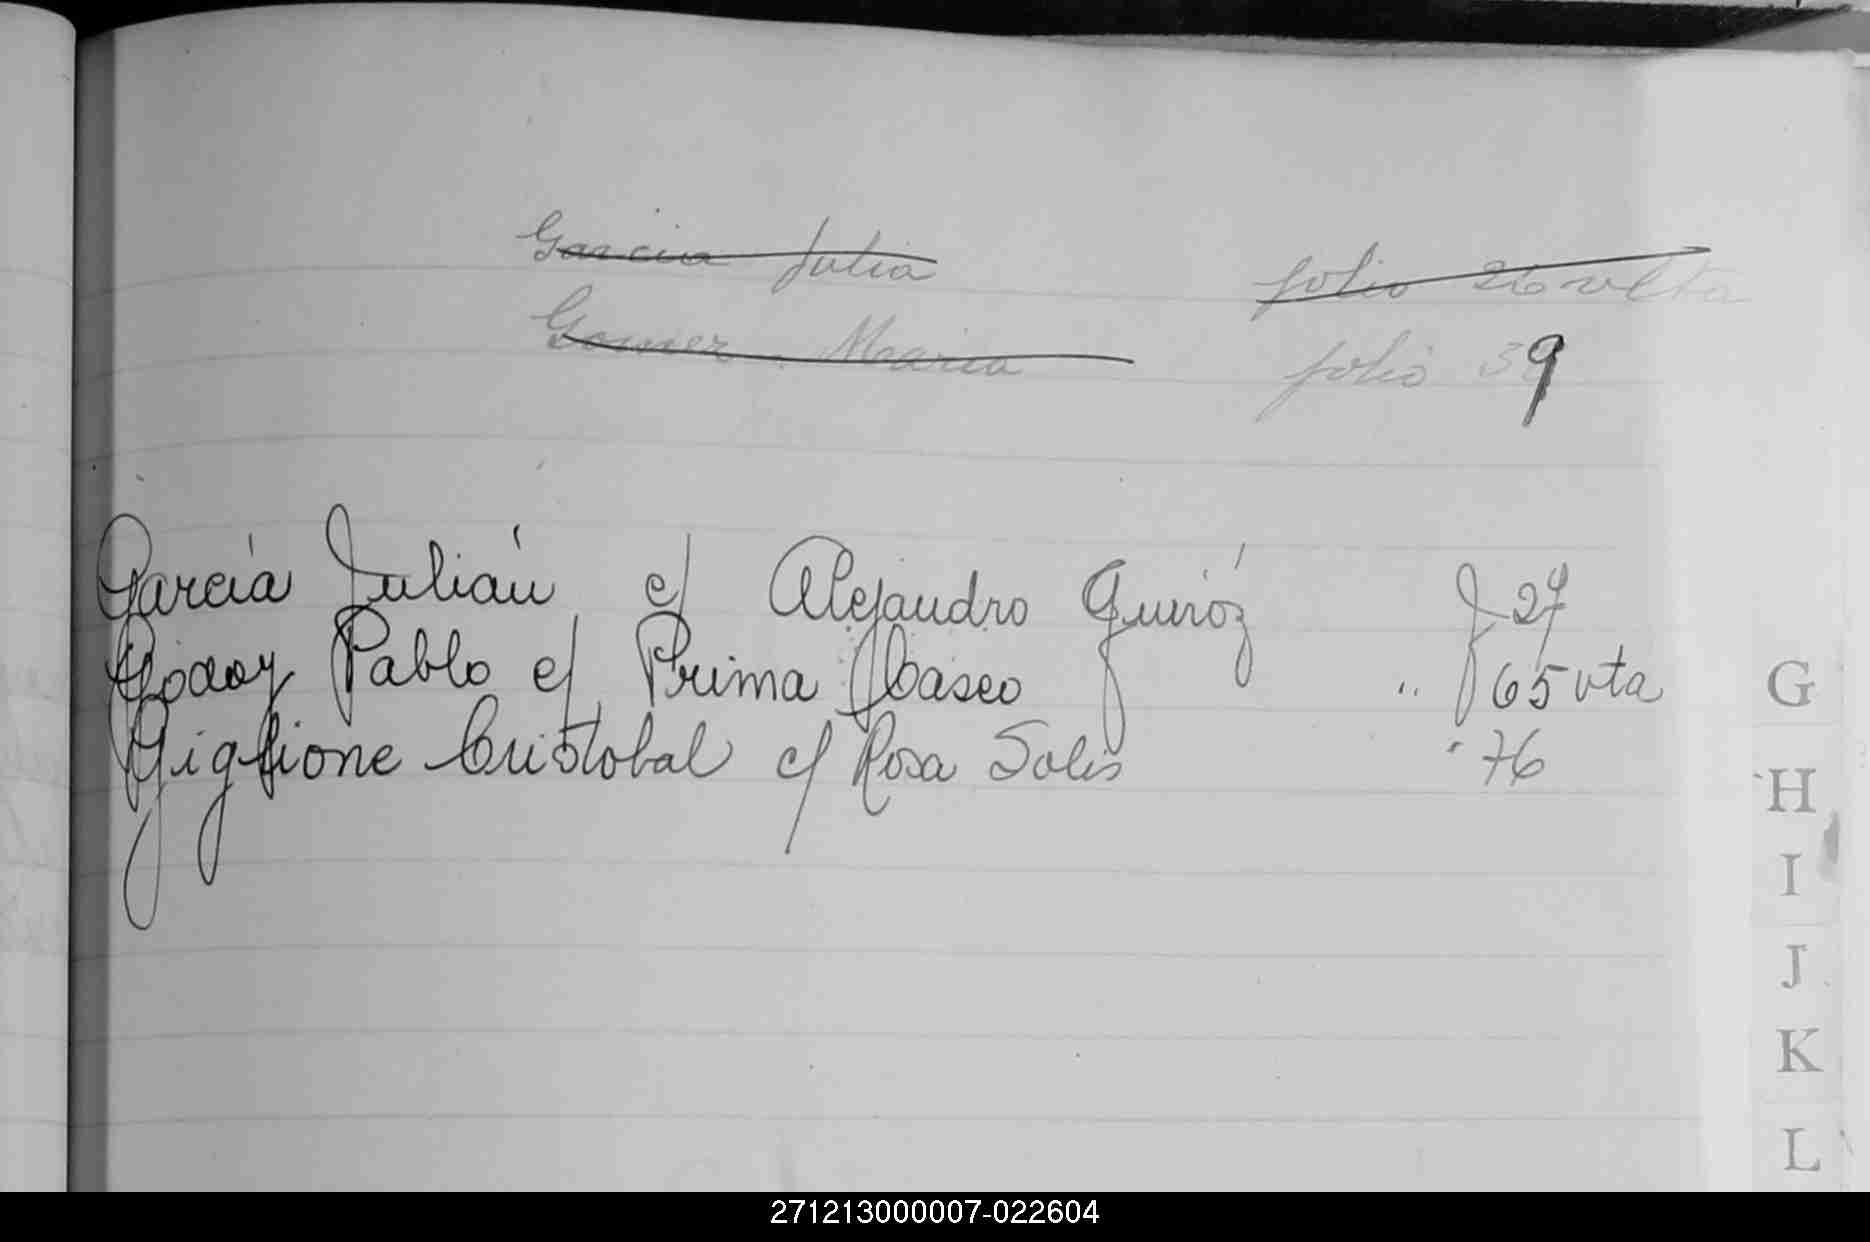 Garcia Julia folio 26 vlta
Gomez Maria folio 39
García Julián c/ Alejandro Quiróz f 27
Godoy Pablo c/ Prima Ibasco " f 65 vta
Giglione Cristobal c/ Rosa Solis " 76
G
H
I
J
K
L
271213000007-022604